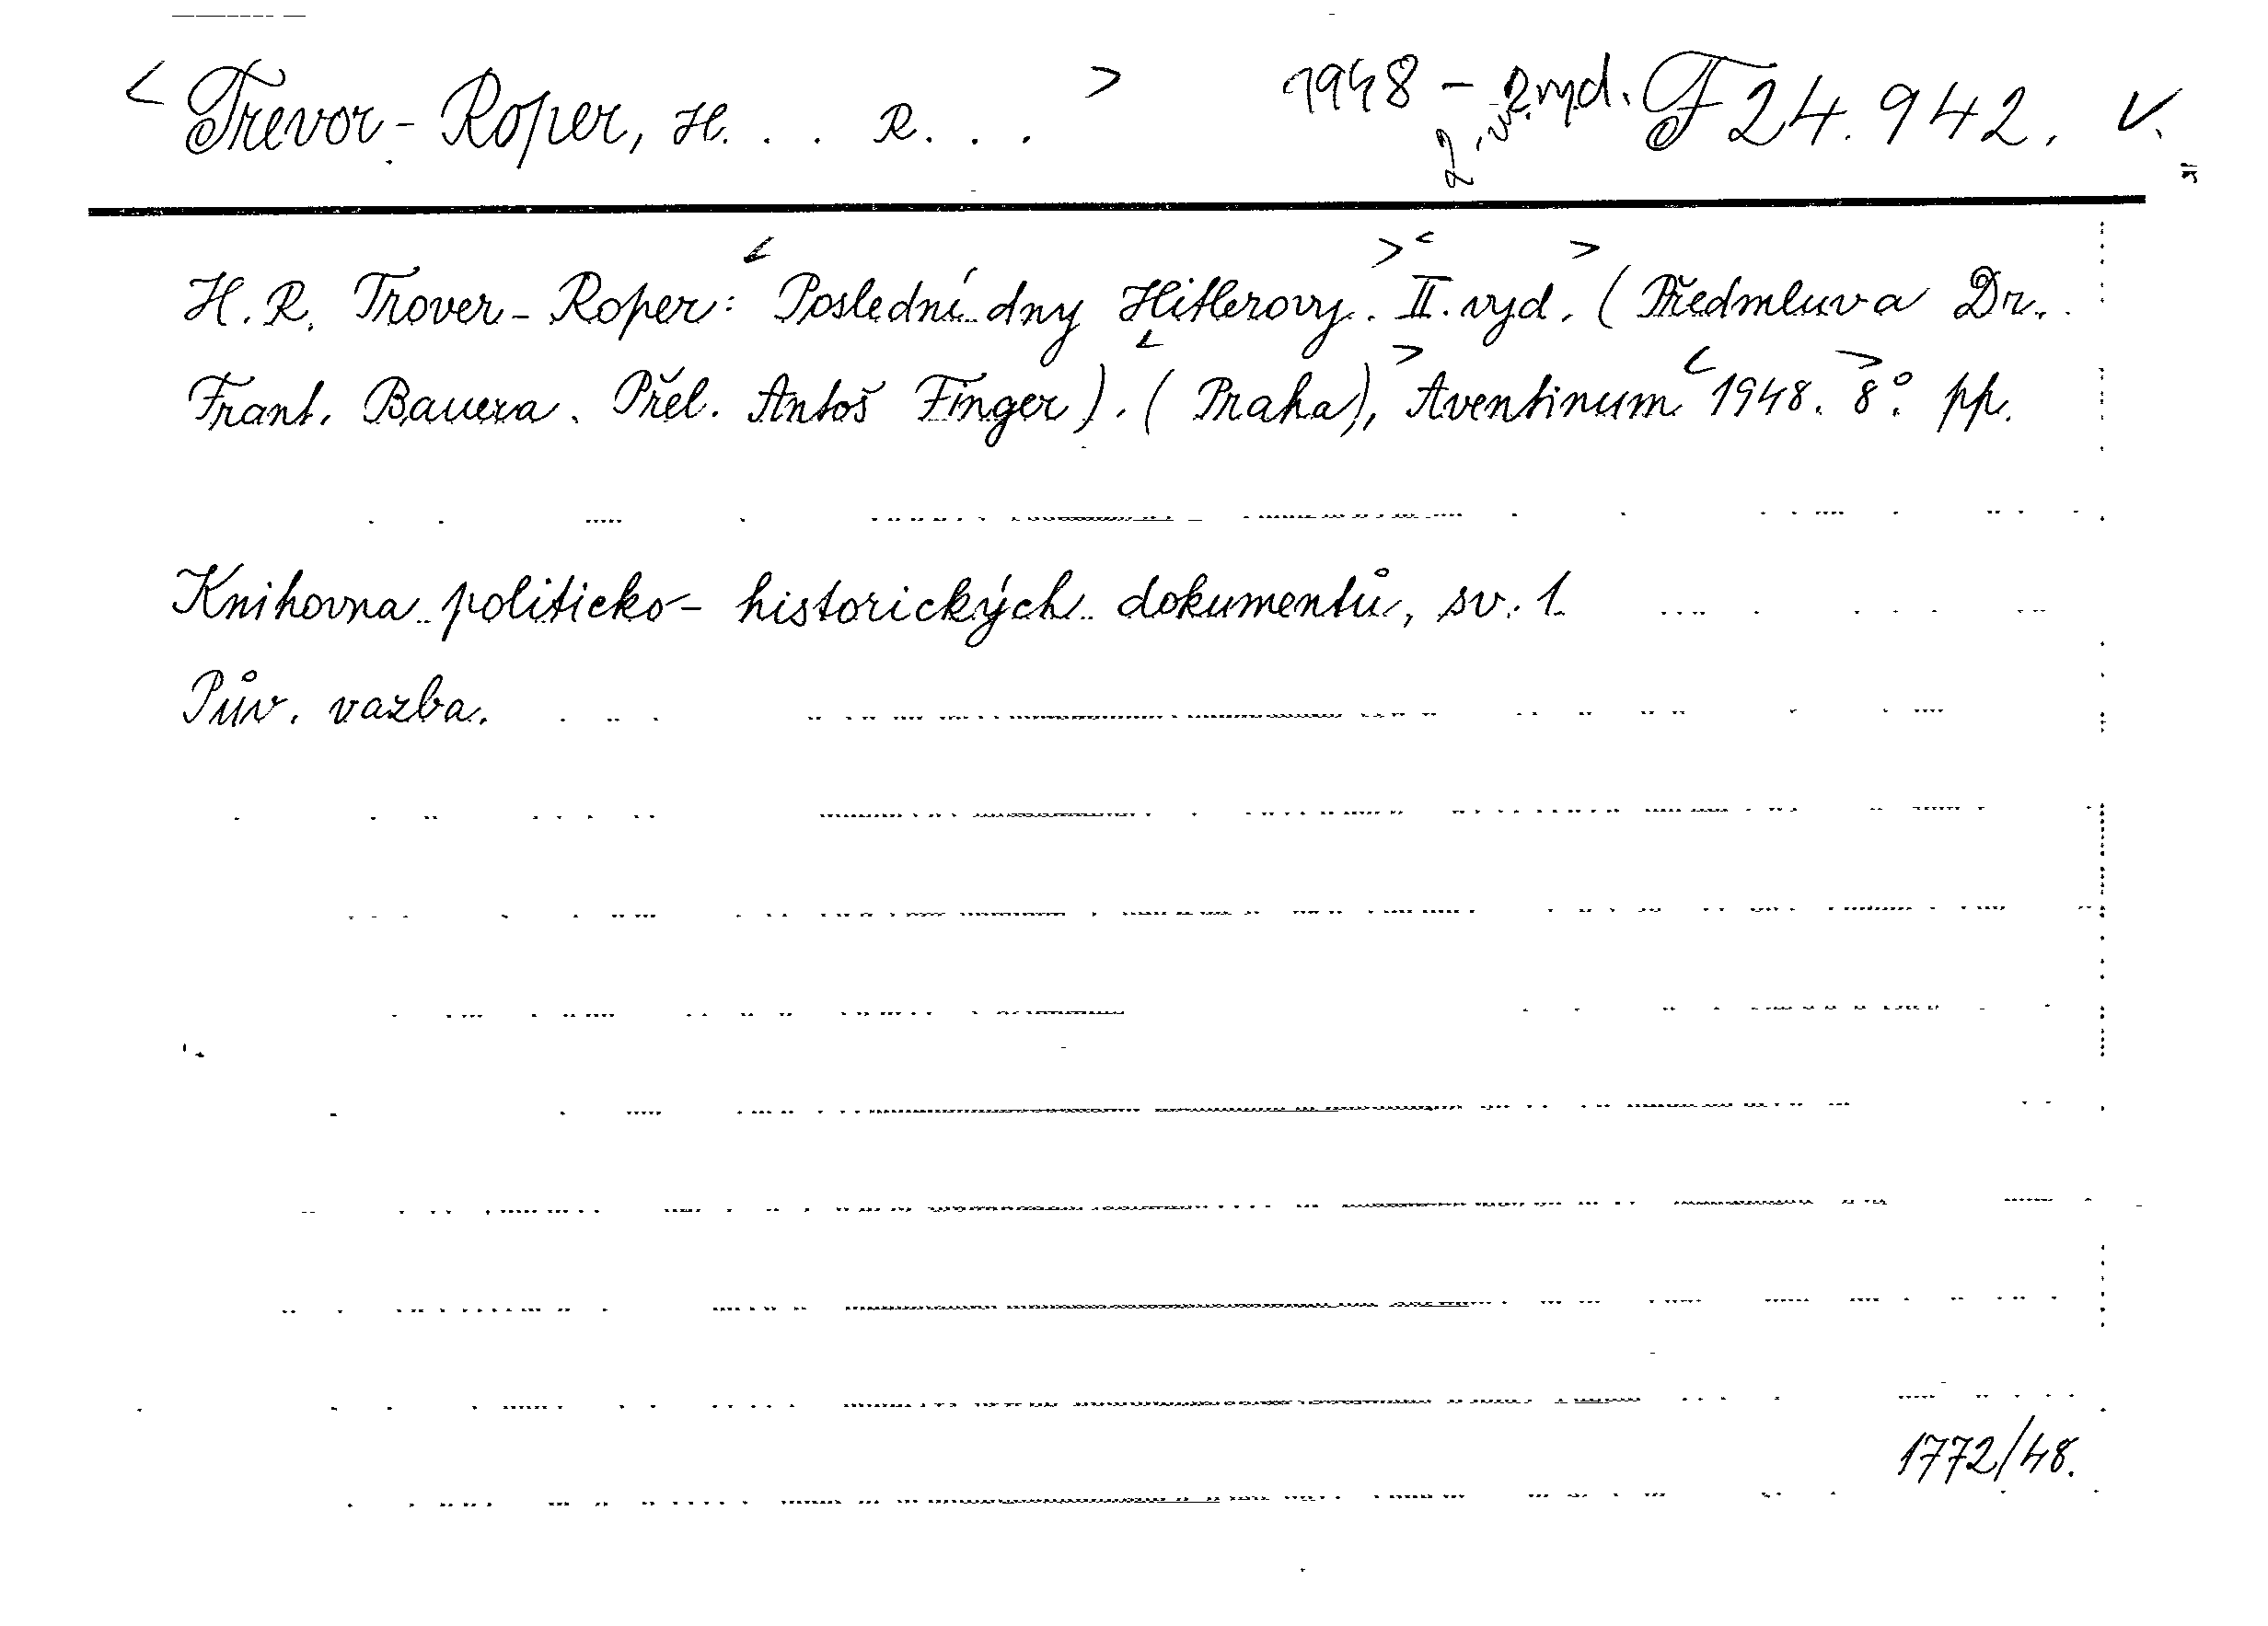 < Trevor-Roper, H. . . R. . . > 1948 - 2.vyd. F 24.942. V.
H. R. Trover-Roper: Poslední dny Hitlerovy. II. vyd. (Předmluva Dr.
Frant. Bauera. Přel. Antoš Finger). (Praha), Aventinum 1948. 8°. pp.
Knihovna politicko-historických dokumentů, sv. 1.
Pův. vazba.
1772/48.